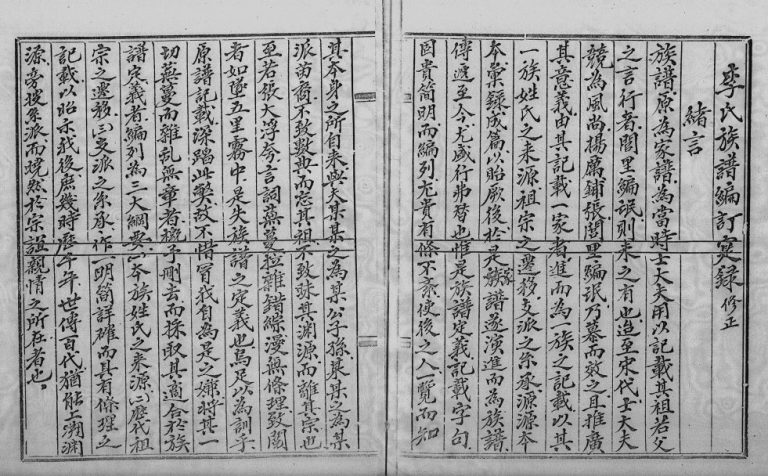 李氏族譜編訂實錄 修正
緒言
族譜原為家譜為當時士大夫用以記載其祖若父
之言行者閭里編氓則未之有也迨至宋代士大夫
競為風尚揚厲鋪張閭里編氓乃慕而效之且推廣
其意義由其記載一家者進而為一族之記載以其
一族姓氏之來源祖宗之遷移支派之系承源源本
本彙錄成篇以貽厥後於是家族譜遂演進而為族譜
傳遞至今尤盛行弗替也惟是族譜定義記載字句
固貴簡明而編列尤貴有條不紊使後之人一覽而知
其本身之所自來與夫某某之為某公子孫某某之為某
派苗裔不致數典而忘其祖不致昧其淵源而離其宗也
至若張大浮夸言詞蕪蔓拉雜錯綜漫無條理致閱
者如墮五里霧中是失族譜之定義也烏足以為訓乎
原譜記載深蹈此弊故不惜冒我自為是之嫌將其一
切蕪蔓而雜亂無章者概予刪去而採取其適合於族
譜定義者編列為三大綱要(一)本族姓氏之來源(二)歷代祖
宗之遷移(三)支派之系承作一明簡詳確而具有條理之
記載以昭示我後庶幾時歷千年世傳百代猶能上溯淵
源旁搜系派而曉然於宗誼親情之所在者也